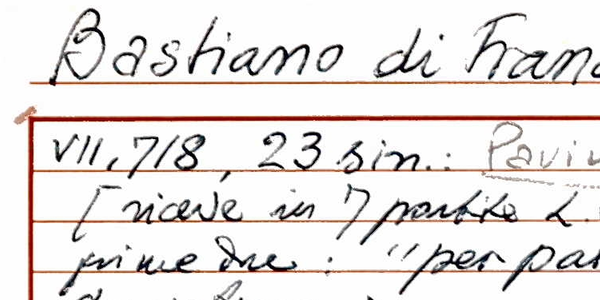 Bastiano di Fran
VII, 718, 23 sin.: Pavi
[riceve in 7 partite L.
prime due: "per pa